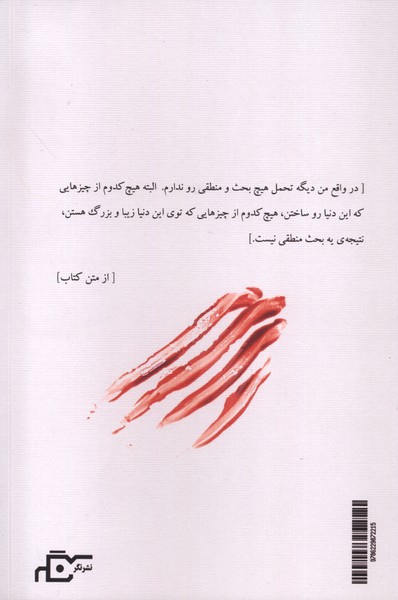 [ در واقع من دیگه تحمل هیچ بحث و منطقی رو ندارم. البته هیچ کدوم از چیزهایی
که این دنیا رو ساختن، هیچ کدوم از چیزهایی که توی این دنیا زیبا و بزرگ هستن،
نتیجه‌ی یه بحث منطقی نیست.]
[ از متن کتاب]
نشر نگر
9786228672215